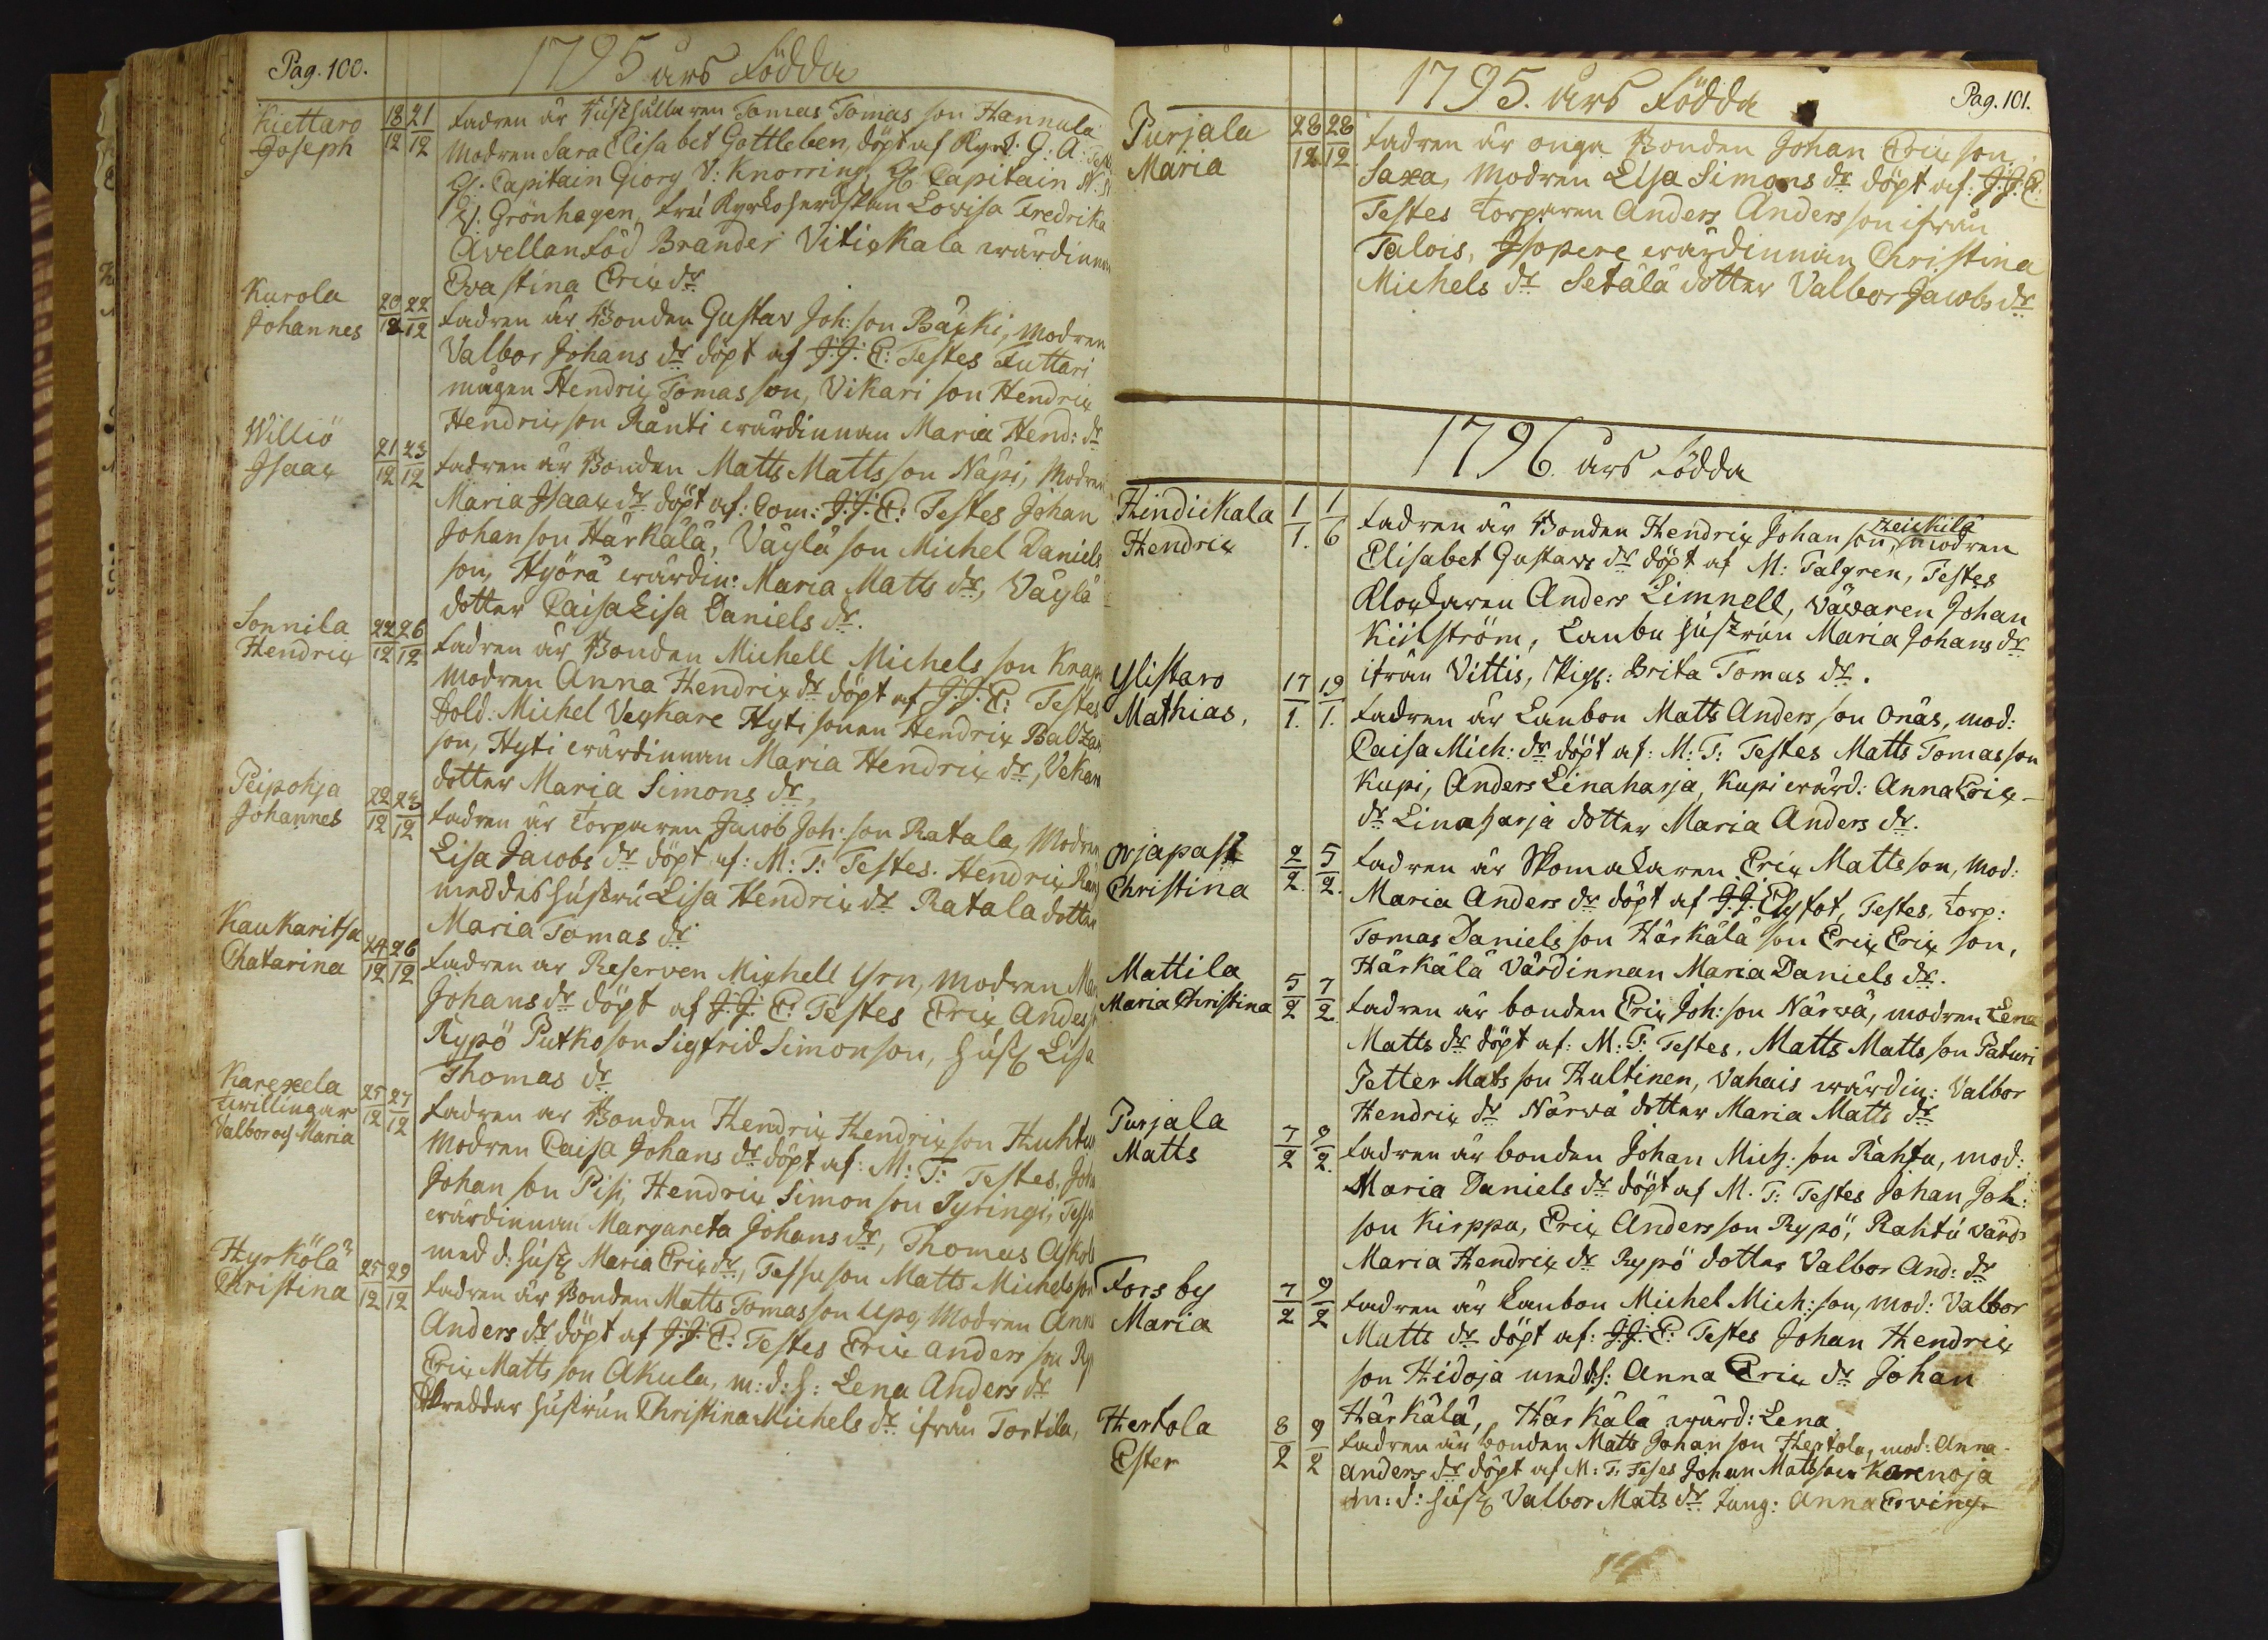 Pag. 100.
1795 års födda
Kiettaro
Joseph
18/12 21/12
fadren är Hushållaren Tomas Tomas son Hannula
Modren Sara Elisabet Gottleben, döpt af Kyrk: G: A: Test
H. Capitain Giorg V: Knorring, H Capitain
Grönhagen, fru Kyrkoherdskan Lovisa Fredrika
Avellan föd Brander Vitickala wärdinnan
Eva stina Erix dr
Kurola
Johannes
20/12 22/12
fadren är Bonden Gustav Joh: son Bäcki, Modren
Valbor Johans dr döpt af J: J: E: Testes Futtari
mågen Hendrix Tomas son, Vikari son Hendrix
Hendrix son Ränti wärdinnan Maria Hend: dr
Williö
Isaac
21/12 23/12
fadren är Bonden Matts Matts son Näpi, Modren
Maria Isaax dr döpt af: Com: J: J: E: Testes Johan
Johan son Härkälä, Väylä son Michel Daniels
son, Hyörä wärdin: Maria Matts dr, Väylä
dotter Caisa Lisa Daniels dr.
Sonnila
Hendrix
22/12 26/12
fadren är Bonden Michell Michels son Knap
Modren Anna Hendrix dr döpt af J: J: E: Testes
Sold: Michel Veykare Hyti sonen Hendrix Baltzar
son, Hyti wärdinnan Maria Hendrix dr, Vekare
dotter Maria Simons dr,
Peipohja
Johannes
22/12 23/12
fadren är Torparen Jacob Joh: son Ratala, Modren
Lisa Jacobs dr döpt af: M: T: Testes. Hendrix
med des hustru Lisa Hendrix dr Ratala dotter
Maria Tomas dr
Kaukaritsa
Chatarina
24/12 26/12
fadren är Reserven Michell Yrn, modren
Johans dr döpt af J: J: E: Testes Erix Anders
Rypö Putko son Sigfrid Simon son, hust Lisa
Thomas dr
Karexela
twillingar
Valbor och Maria
25/12 27/12
fadren är Bonden Hendrix Hendrix son Huhta
Modren Caisa Johans dr döpt af: M: T: Testes, Joh
Johan son Pisi, Hendrix Simon son Pyringi,
wärdinnan Margareta Johans dr, Thomas
med d: hust Maria Erix dr, Tessu son Matts Michels son
Hyrkölä
Christina
25/12 29/12
fadren är Bonden Matts Tomas son Upo, Modren Anna
Anders dr döpt af J: J: E: Testes Erix Anders son Ry
Erix Matts son Akula, m: d: h: Lena Anders dr
Skreddar hustrun Christina Michels dr ifrån Tortila,
1795. års födda
Pag. 101.
Purjala
Maria
28/12 28/12
fadren är onga Bonden Johan Erix son
Saxa, Modren Lisa Simons dr döpt af: J: J: E:
Testes torparen Anders Anders son ifrån
Talois, Isopere wärdinnan Christina
Michels dr Setälä dotter Valbor Jacobs dr
1796. års födda
Hindickala
Hendrix
1/1. 1/6
fadren är Bonden Hendrix Johan son, Heickilä modren
Elisabet Gustavs dr döpt af M: Talgren, Testes
Klockaren Anders Limnell, Wäwaren Johan
Kiilström, Lanbu hustrun Maria Johans dr
ifrån Vittis, Pig: Brita Tomas dr.
Ylistaro
Mathias,
17/1. 19/1.
fadren är Lanbon Matts Anders son Onäs, mod:
Caisa Mich: dr döpt af: M: T: Testes Matts Tomas son
Kupi, Anders Linaharja, Kupi wärd: Anna Erix
dr Linaharja dotter Maria Anders dr.
Orjapast
Christina
2/2. 5/2.
fadren är Skomakaren Erix Matts son, Mod:
Maria Anders dr döpt af J: J: Elgfot, Testes, torp:
Tomas Daniels son Härkälä son Erix Erix son,
Härkälä Värdinnan Maria Daniels dr.
Mattila
Maria Christina
5/2 7/2
fadren är bonden Erix Joh: son Närvä, modren Lena
Matts dr döpt af: M: T: Testes, Matts Matts son Paturi
Petter Mats son Hultinen, Vahais wärdin: Valbor
Hendrix dr Närvä dotter Maria Matts dr
Purjala
Matts
7/2 9/2.
fadren är bonden Johan Mich: son Rahtu, mod:
Maria Daniels dr döpt af M. T: Testes Johan Joh:
son Kirppu, Erix Anders son Rypö, Rahtu värd
Maria Hendrix dr Rypö dotter Valbor And: dr
Forsby
Maria
7/2 9/2
fadren är Lanbon Michel Mich: son, mod: Valbor
Matts dr döpt af: J: J: E: Testes Johan Hendrix
son Hidoja med d: h: Anna Erix dr Johan
Härkälä, Härkälä wärd: Lena
Hertola
Ester
8/2 9/2
fadren är bonden Matts Johan son Hertola, mod: Anna
Anders dr döpt af M: T: Teses Johan Mats son Karenoja
m: d: hust Valbor Mats dr Jung: Anna Erving